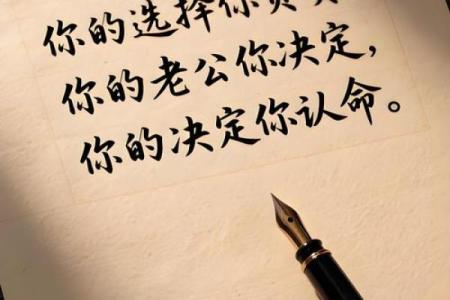 你的选择你
你的老公你决定，
你的决定你认命。